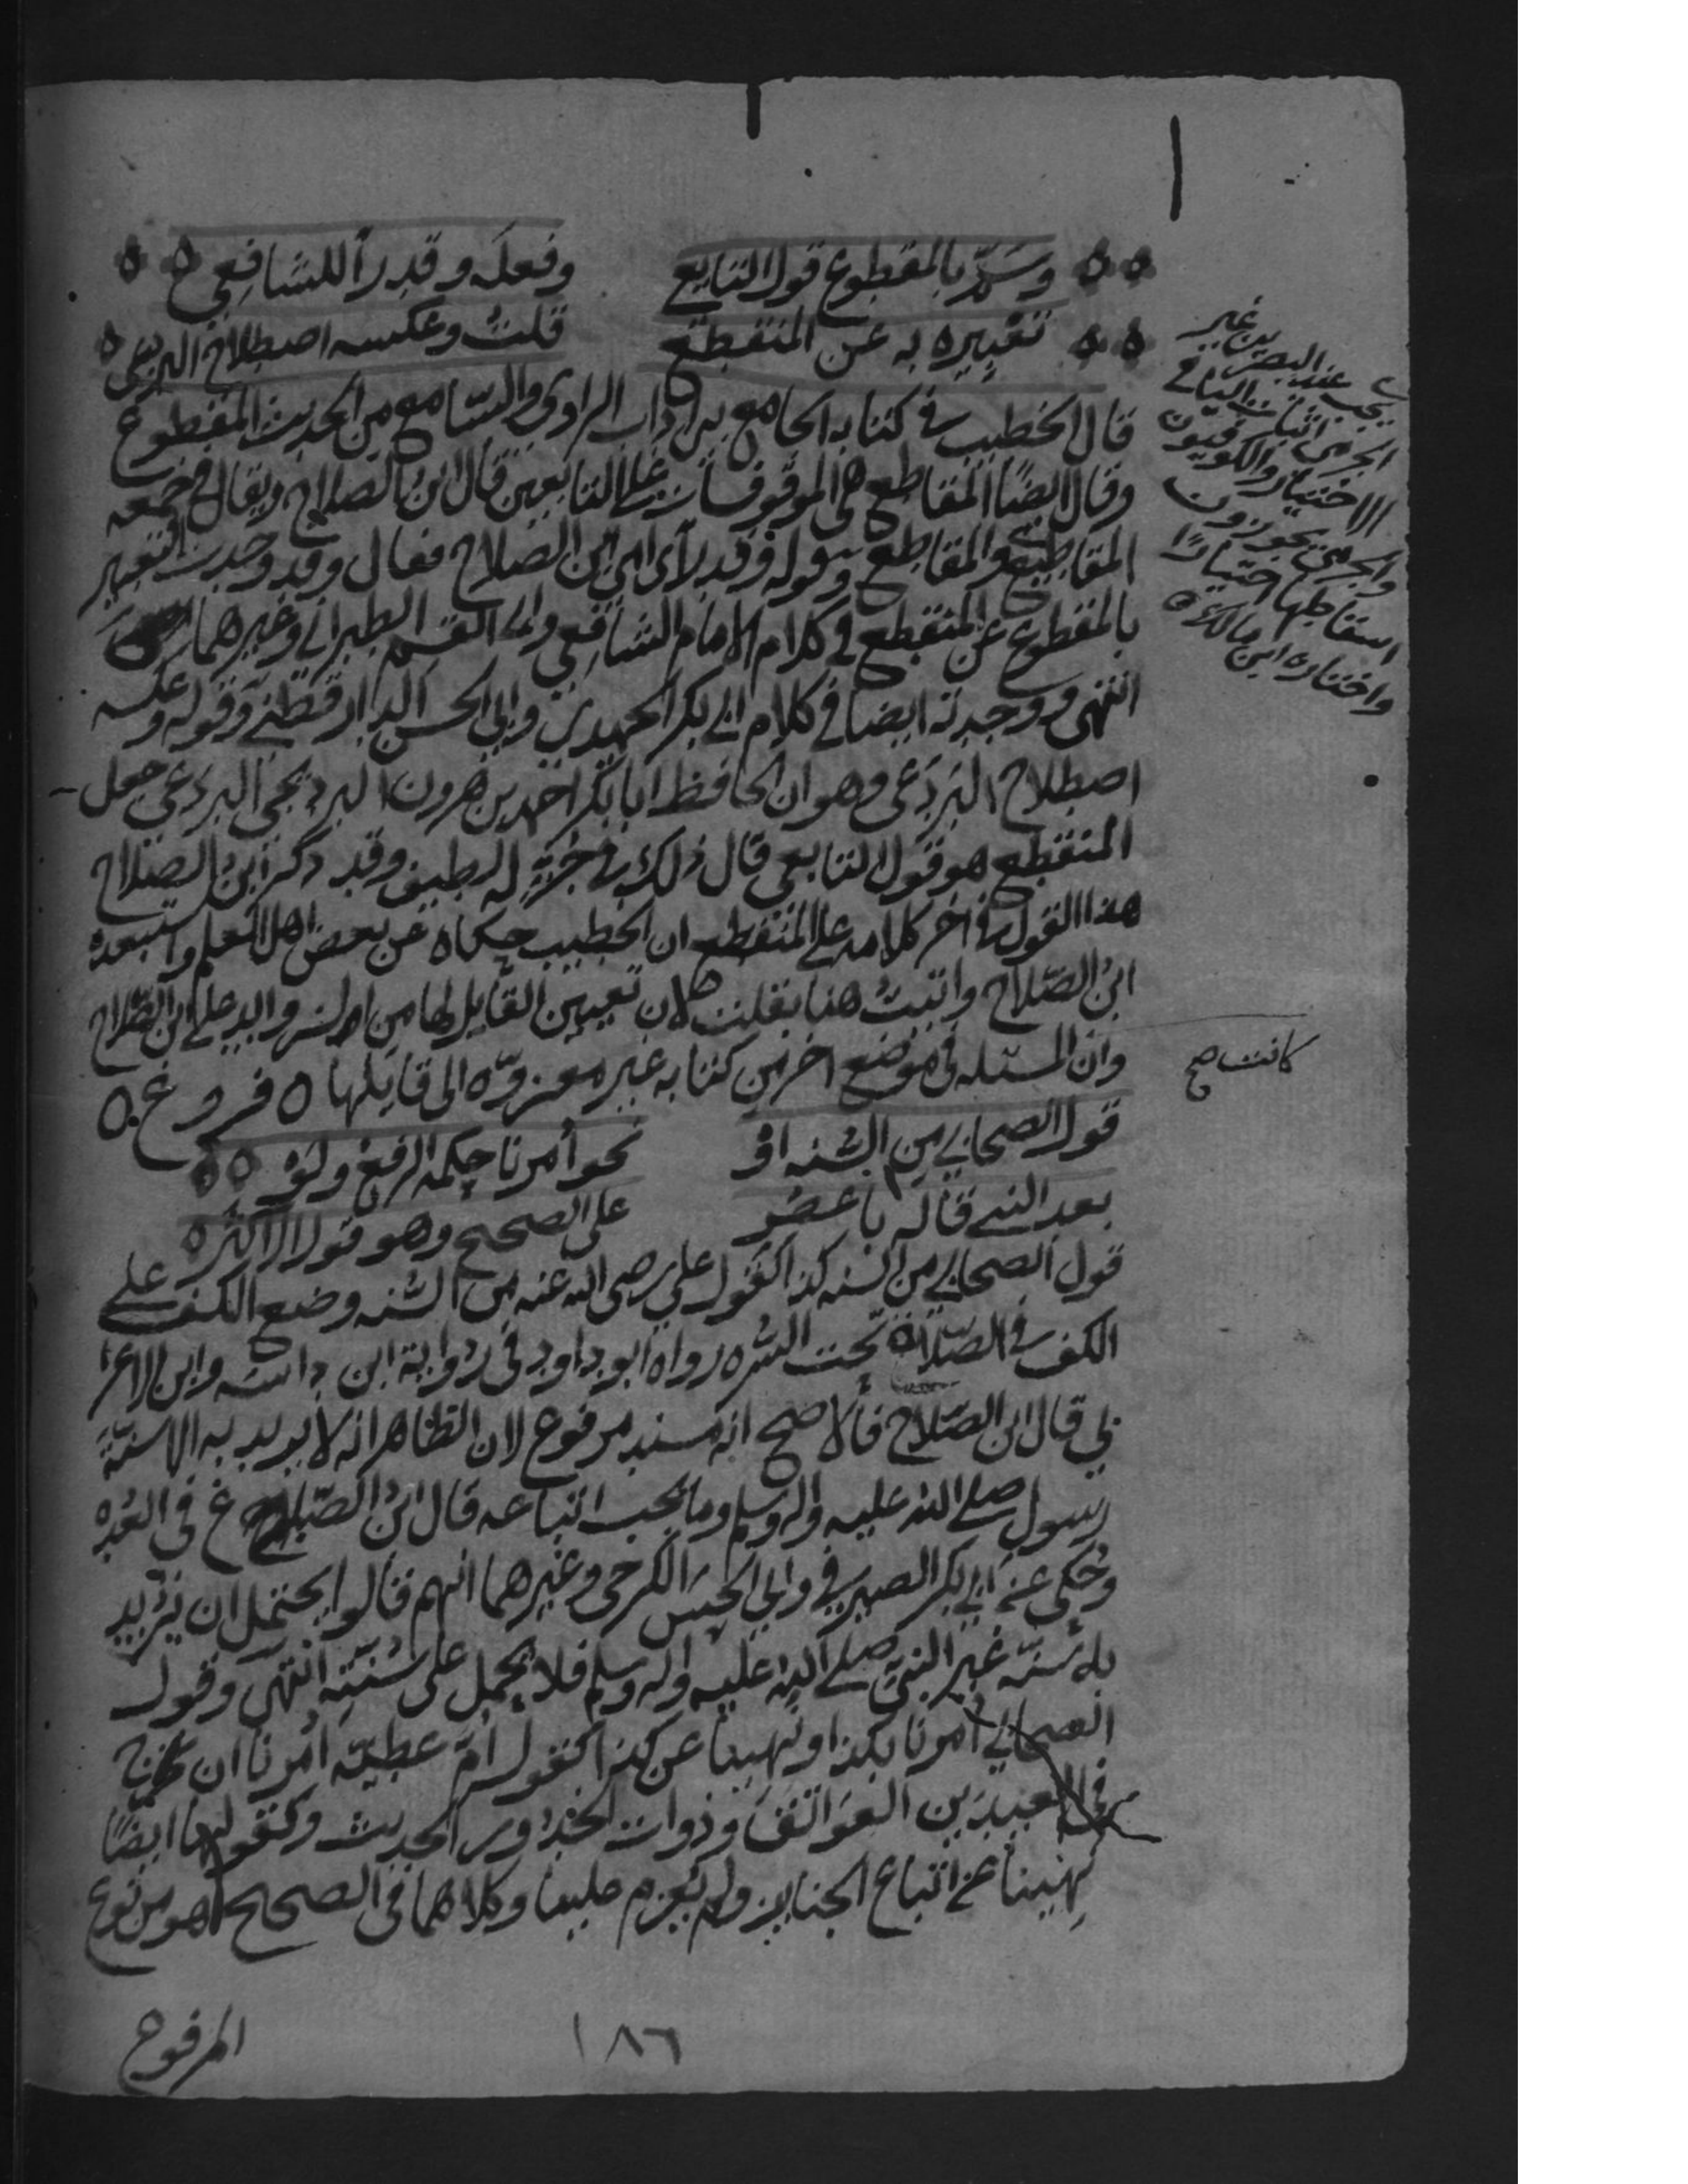 وسم بالمقطوع قول التابعي وفعله وقد رأى للشافعي
تعبيره به عن المنقطع قلت وعكسه اصطلاح البردعي
قال الخطيب في كتابه الجامع بين اداب الراوي والسامع من الحديث المقطوع
وقال ايضا المقاطع هي الموقوفات على التابعين قال ابن الصلاح ويقال في جمعه
المقاطيع والمقاطع وقوله وقد رأى اي ابن الصلاح فقال وقد وجدت التعبير
بالمقطوع عن المنقطع في كلام الامام الشافعي وابي القسم الطبراني وغيرهما
انتهى ووجدته ايضا في كلام ابي بكر الحميدي وابي الحسن الدارقطني وقوله وعكسه
اصطلاح البردعي وهو ان الحافظ ابا بكر احمد بن هرون البرديجي البردعي جعل
المنقطع هو قول التابعي قال ذلك في جزء له لطيف وقد ذكر ابن الصلاح
هذا القول في اخر كلامه على المنقطع ان الخطيب حكاه عن بعض اهل العلم واستبعده
ابن الصلاح واتيت هنا بقلت لان تعيين القايل لها من زوايد على ابن الصلاح
وان المسئله في موضع اخر من كتابه غير معزوه الى قايلها ٥ فروع ٥
قول الصحابي من السنه او نحو أمرنا حكمه الرفع ولو
بعد النبي قاله باعصر على الصحيح وهو قول الاكثر
قول الصحابي من السنه كذا كقول علي رضى الله عنه من السنه وضع الكف على
الكف في الصلاة تحت السره رواه ابو داود في رواية ابن داسه وابن الاعرا
بي قال ابن الصلاح فالاصح انه مسند مرفوع لان الظاهر انه لا يريد به الا سنة
رسول صلى الله عليه واله وسلم وما يجب اتباعه قال ابن الصباغ في العده
وحكى عن ابي بكر الصيرفي وابي الحسن الكرخي وغيرهما انهم قالوا يحتمل ان يريد
به سنة غير النبي صلى الله عليه واله وسلم فلا يحمل على سنته انتهى وقول
الصحابي أمرنا بكذا ونهينا عن كذا كقول ام عطية أمرنا ان نخرج
في العيدين العواتق وذوات الخدور الحديث وكقولها ايضا
نهينا عن اتباع الجنايز ولم يعزم علينا وكلاهما في الصحيح هو من نوع
المرفوع
١٨٦
اثبات اليا في
الاختيار والكوفيون
والجرمي يجوزون
اسقاطها اختيارا
واختاره ابن مالك
كانت صح